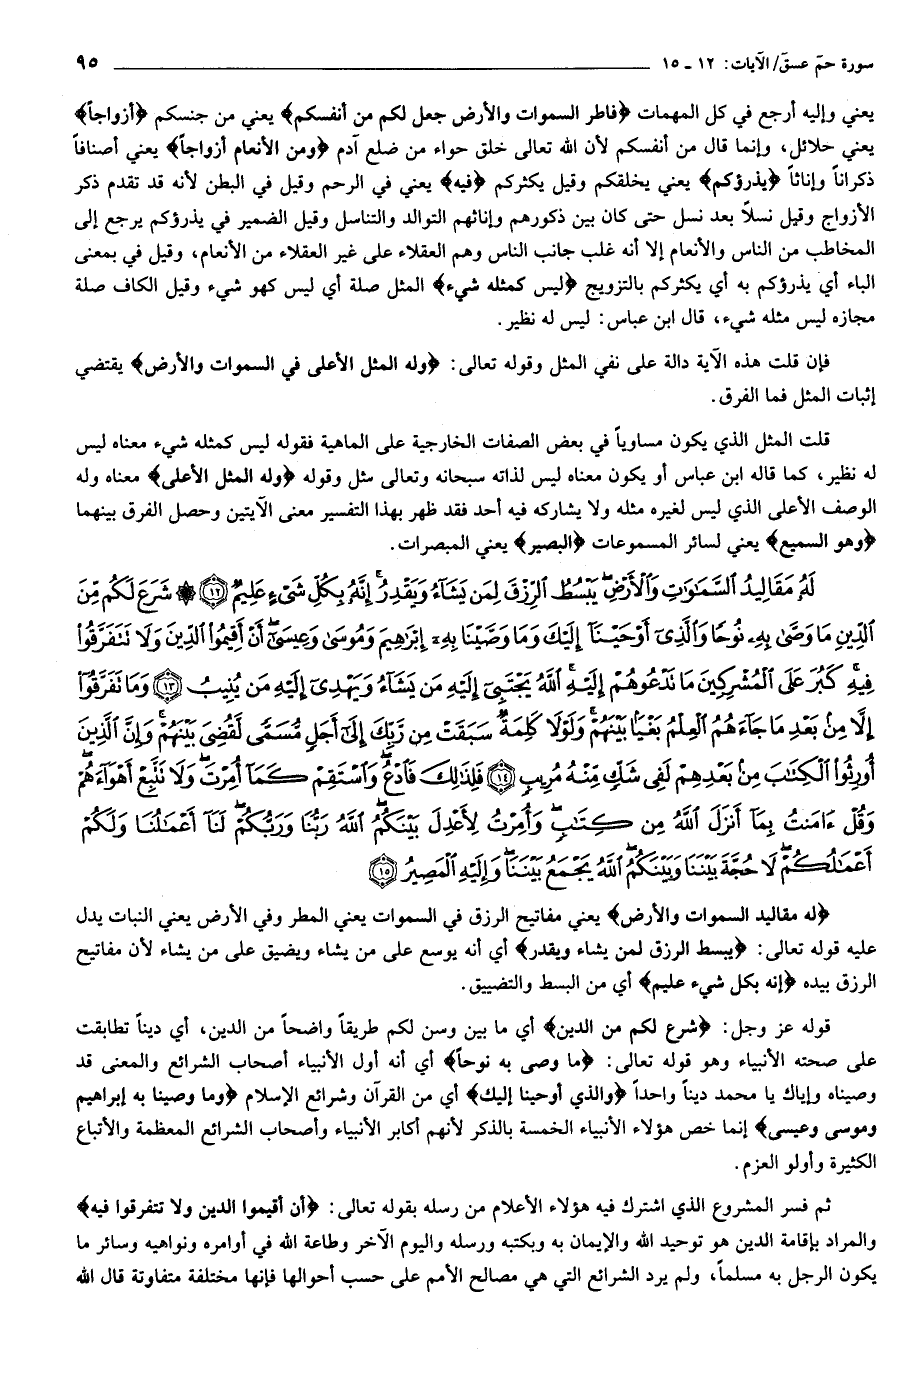 سورة حمّ عسق/ الآيات: ١٢ ـ ١٥ ٩٥
يعني وإليه أرجع في كل المهمات ﴿فاطر السموات والأرض جعل لكم من أنفسكم﴾ يعني من جنسكم ﴿أزواجاً﴾
يعني حلائل، وإنما قال من أنفسكم لأن الله تعالى خلق حواء من ضلع آدم ﴿ومن الأنعام أزواجاً﴾ يعني أصنافاً
ذكراناً وإناثاً ﴿يذرؤكم﴾ يعني يخلقكم وقيل يكثركم ﴿فيه﴾ يعني في الرحم وقيل في البطن لأنه قد تقدم ذكر
الأزواج وقيل نسلاً بعد نسل حتى كان بين ذكورهم وإناثهم التوالد والتناسل وقيل الضمير في يذرؤكم يرجع إلى
المخاطب من الناس والأنعام إلا أنه غلب جانب الناس وهم العقلاء على غير العقلاء من الأنعام، وقيل في بمعنى
الباء أي يذرؤكم به أي يكثركم بالتزويج ﴿ليس كمثله شيء﴾ المثل صلة أي ليس كهو شيء وقيل الكاف صلة
مجازه ليس مثله شيء، قال ابن عباس: ليس له نظير.
فإن قلت هذه الآية دالة على نفي المثل وقوله تعالى: ﴿وله المثل الأعلى في السموات والأرض﴾ يقتضي
إثبات المثل فما الفرق.
قلت المثل الذي يكون مساوياً في بعض الصفات الخارجية على الماهية فقوله ليس كمثله شيء معناه ليس
له نظير، كما قاله ابن عباس أو يكون معناه ليس لذاته سبحانه وتعالى مثل وقوله ﴿وله المثل الأعلى﴾ معناه وله
الوصف الأعلى الذي ليس لغيره مثله ولا يشاركه فيه أحد فقد ظهر بهذا التفسير معنى الآيتين وحصل الفرق بينهما
﴿وهو السميع﴾ يعني لسائر المسموعات ﴿البصير﴾ يعني المبصرات.
لَهُ مَقَالِيدُ السَّمَاوَاتِ وَالْأَرْضِ يَبْسُطُ الرِّزْقَ لِمَن يَشَاءُ وَيَقْدِرُ إِنَّهُ بِكُلِّ شَيْءٍ عَلِيمٌ ﴿١٢﴾ ۞ شَرَعَ لَكُم مِّنَ
الدِّينِ مَا وَصَّى بِهِ نُوحًا وَالَّذِي أَوْحَيْنَا إِلَيْكَ وَمَا وَصَّيْنَا بِهِ إِبْرَاهِيمَ وَمُوسَى وَعِيسَى أَنْ أَقِيمُوا الدِّينَ وَلَا تَتَفَرَّقُوا
فِيهِ كَبُرَ عَلَى الْمُشْرِكِينَ مَا تَدْعُوهُمْ إِلَيْهِ اللَّهُ يَجْتَبِي إِلَيْهِ مَن يَشَاءُ وَيَهْدِي إِلَيْهِ مَن يُنِيبُ ﴿١٣﴾ وَمَا تَفَرَّقُوا
إِلَّا مِنْ بَعْدِ مَا جَاءَهُمُ الْعِلْمُ بَغْيًا بَيْنَهُمْ وَلَوْلَا كَلِمَةٌ سَبَقَتْ مِن رَّبِّكَ إِلَى أَجَلٍ مُّسَمًّى لَّقُضِيَ بَيْنَهُمْ وَإِنَّ الَّذِينَ
أُورِثُوا الْكِتَابَ مِنْ بَعْدِهِمْ لَفِي شَكٍّ مِّنْهُ مُرِيبٍ ﴿١٤﴾ فَلِذَلِكَ فَادْعُ وَاسْتَقِمْ كَمَا أُمِرْتَ وَلَا تَتَّبِعْ أَهْوَاءَهُمْ
وَقُلْ ءَامَنتُ بِمَا أَنزَلَ اللَّهُ مِن كِتَابٍ وَأُمِرْتُ لِأَعْدِلَ بَيْنَكُمُ اللَّهُ رَبُّنَا وَرَبُّكُمْ لَنَا أَعْمَالُنَا وَلَكُمْ
أَعْمَالُكُمْ لَا حُجَّةَ بَيْنَنَا وَبَيْنَكُمُ اللَّهُ يَجْمَعُ بَيْنَنَا وَإِلَيْهِ الْمَصِيرُ ﴿١٥﴾
﴿له مقاليد السموات والأرض﴾ يعني مفاتيح الرزق في السموات يعني المطر وفي الأرض يعني النبات يدل
عليه قوله تعالى: ﴿يبسط الرزق لمن يشاء ويقدر﴾ أي أنه يوسع على من يشاء ويضيق على من يشاء لأن مفاتيح
الرزق بيده ﴿إنه بكل شيء عليم﴾ أي من البسط والتضييق.
قوله عز وجل: ﴿شرع لكم من الدين﴾ أي ما بين وسن لكم طريقاً واضحاً من الدين، أي ديناً تطابقت
على صحته الأنبياء وهو قوله تعالى: ﴿ما وصى به نوحاً﴾ أي أنه أول الأنبياء أصحاب الشرائع والمعنى قد
وصيناه وإياك يا محمد ديناً واحداً ﴿والذي أوحينا إليك﴾ أي من القرآن وشرائع الإسلام ﴿وما وصينا به إبراهيم
وموسى وعيسى﴾ إنما خص هؤلاء الأنبياء الخمسة بالذكر لأنهم أكابر الأنبياء وأصحاب الشرائع المعظمة والأتباع
الكثيرة وأولو العزم.
ثم فسر المشروع الذي اشترك فيه هؤلاء الأعلام من رسله بقوله تعالى: ﴿أن أقيموا الدين ولا تتفرقوا فيه﴾
والمراد بإقامة الدين هو توحيد الله والإيمان به وبكتبه ورسله واليوم الآخر وطاعة الله في أوامره ونواهيه وسائر ما
يكون الرجل به مسلماً، ولم يرد الشرائع التي هي مصالح الأمم على حسب أحوالها فإنها مختلفة متفاوتة قال الله